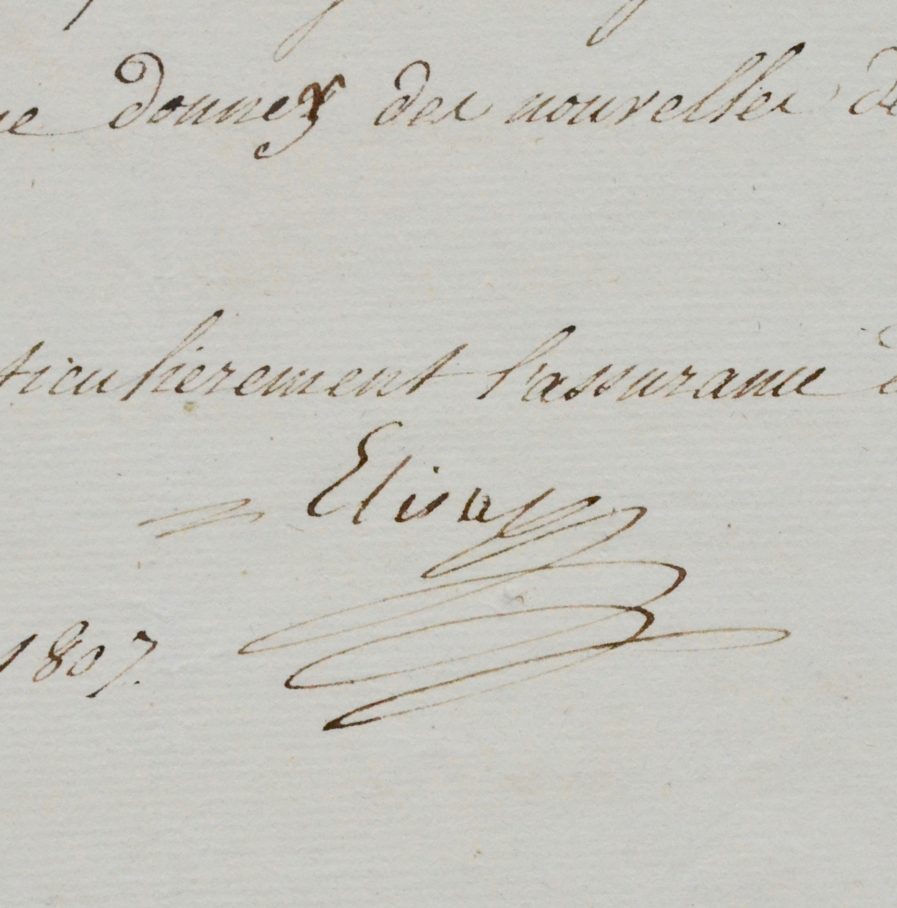 ne donnez des nouvelles de
ticulièrement l'assurance d
Elisa
1807.